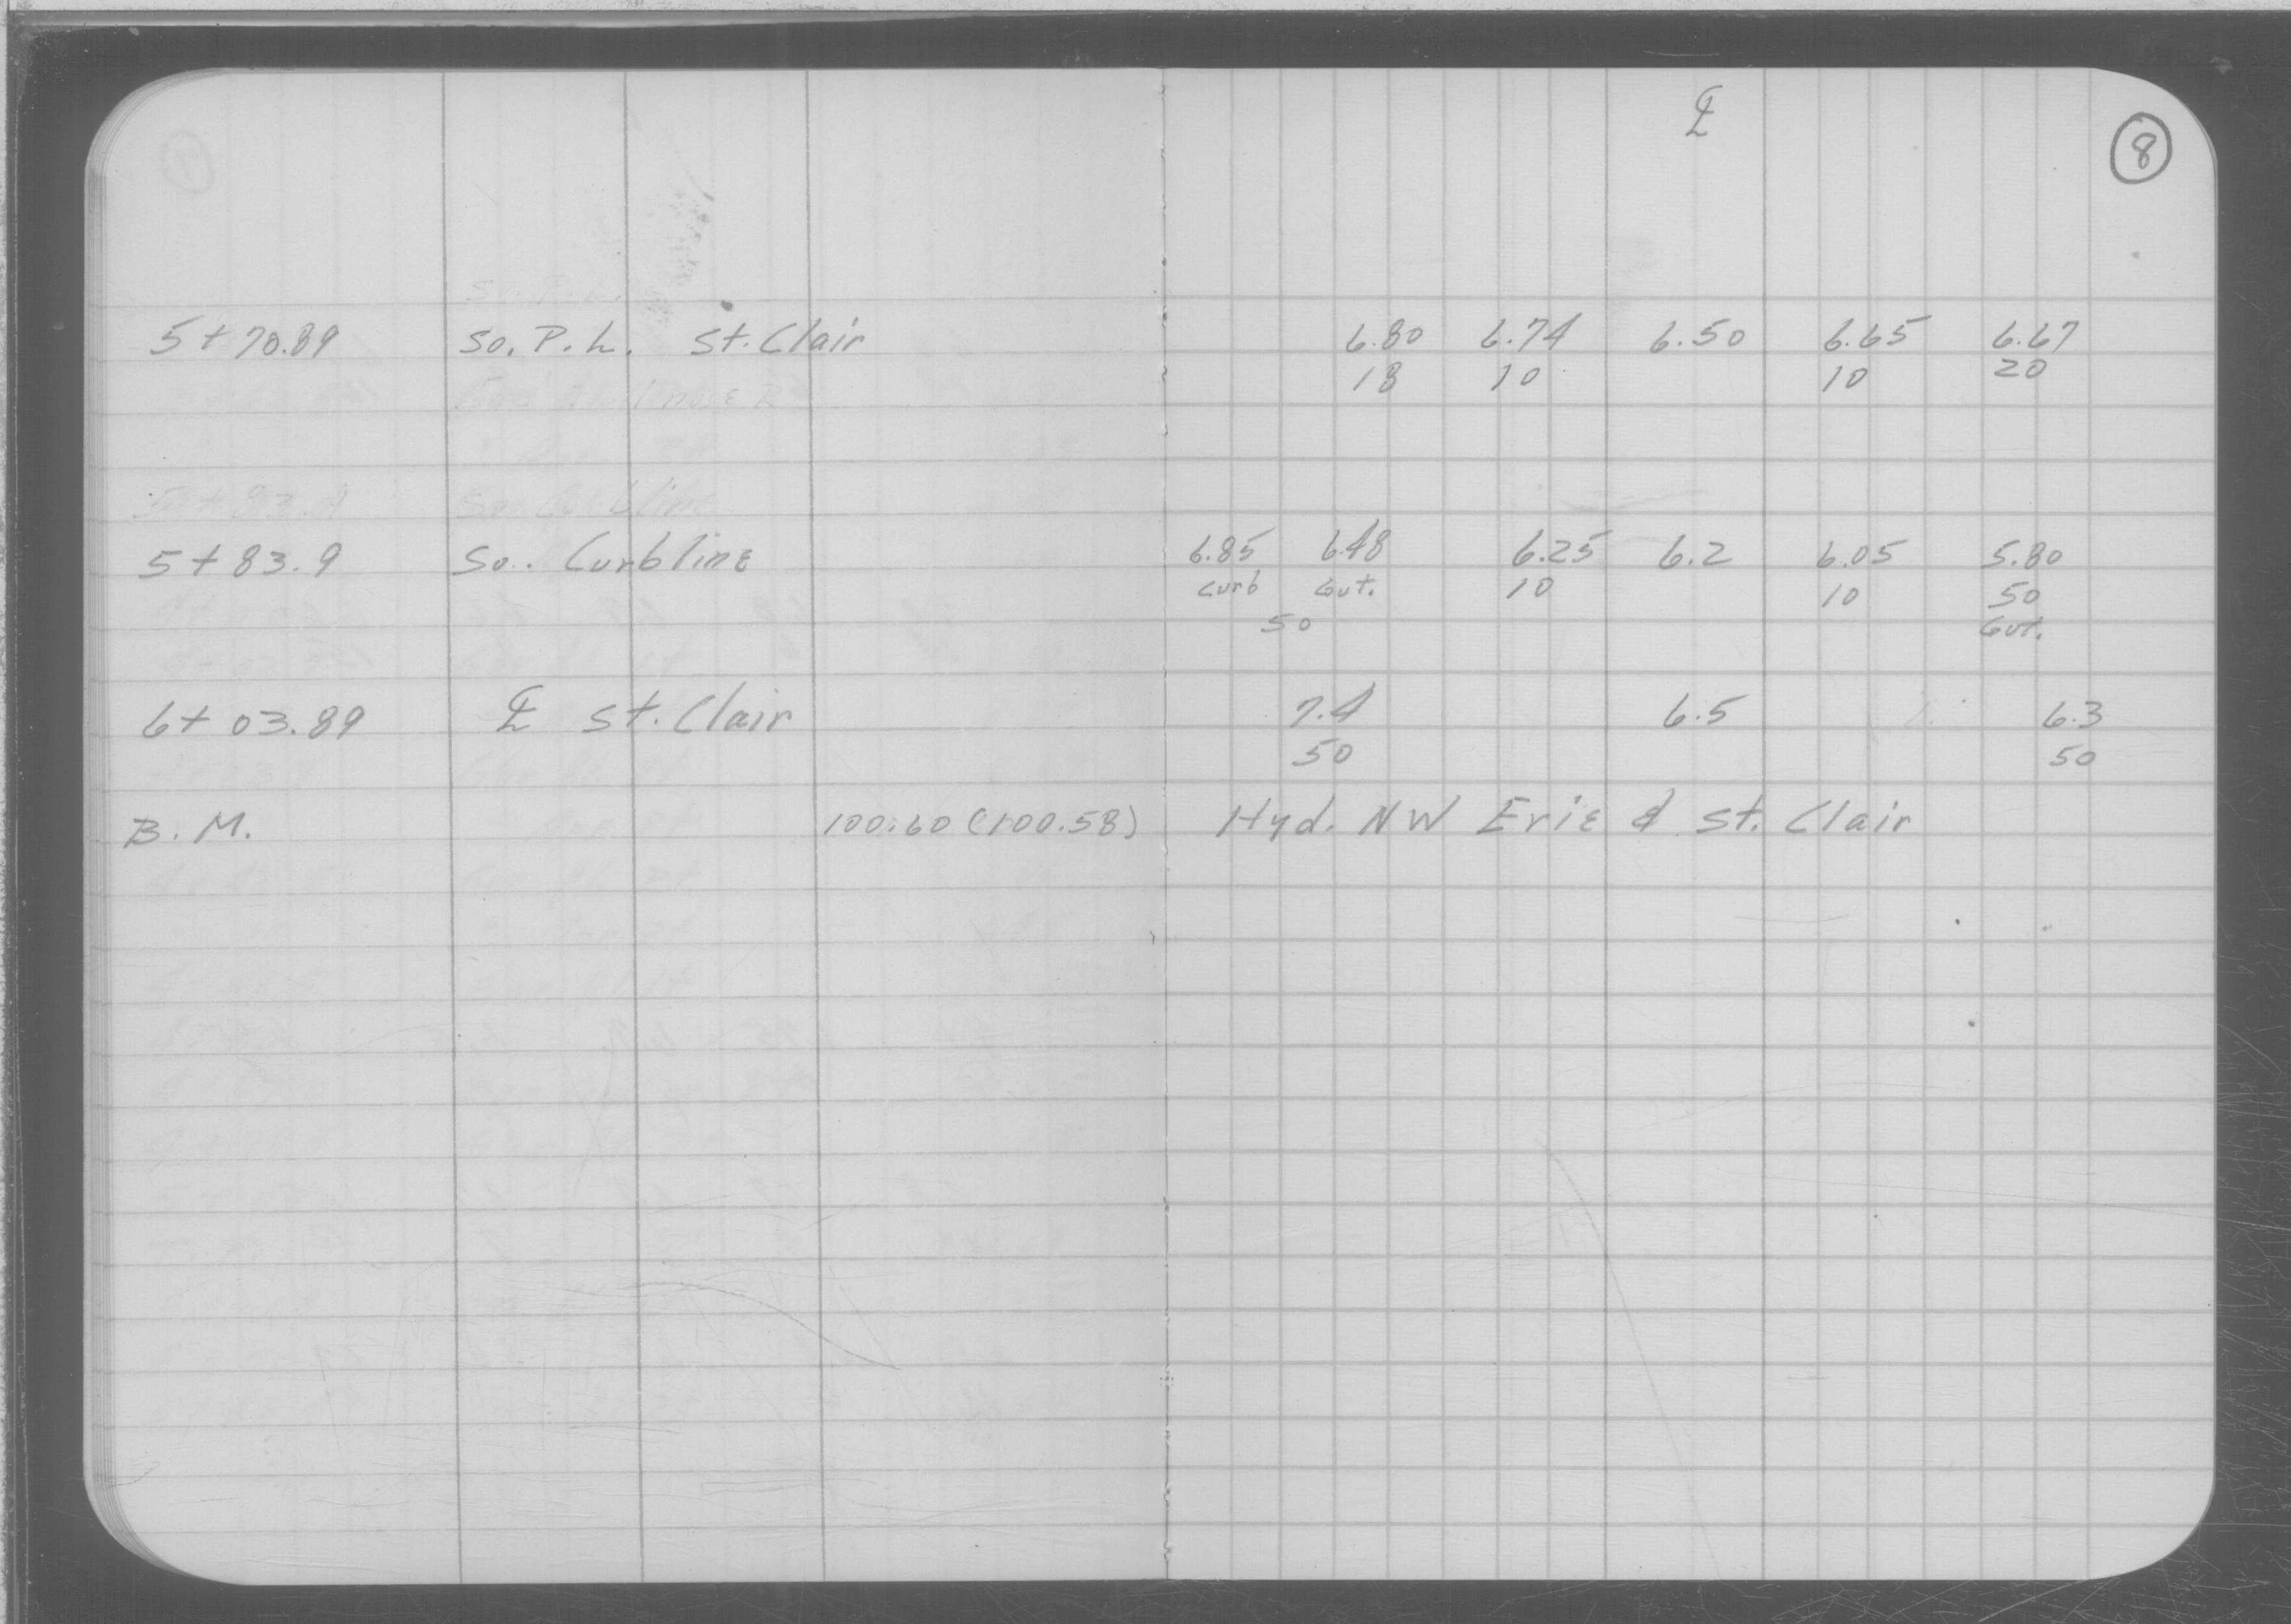 ℄
8
5+70.89 So. P.L. St. Clair 6.80 6.74 6.50 6.65 6.67
18 10 10 20
5+83.9 So. Curbline 6.85 6.48 6.25 6.2 6.05 5.80
Curb Gut. 10 10 50
50 Gut.
6+03.89 ℄ St. Clair 7.4 6.5 6.3
50 50
B.M. 100.60 (100.58) Hyd. NW Erie & St. Clair